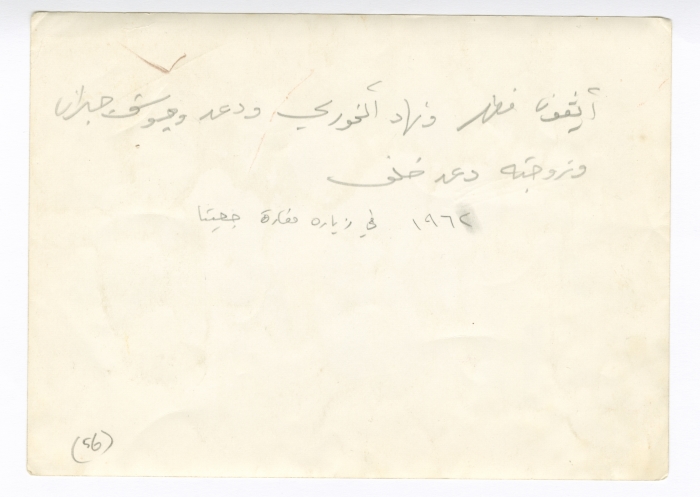 أنيفون مطر ونهاد الخوري ودعد وميوشف جبران
وزوجته دعد خلف
١٩٦٢ في زياره مغارة جعيتا
(56)